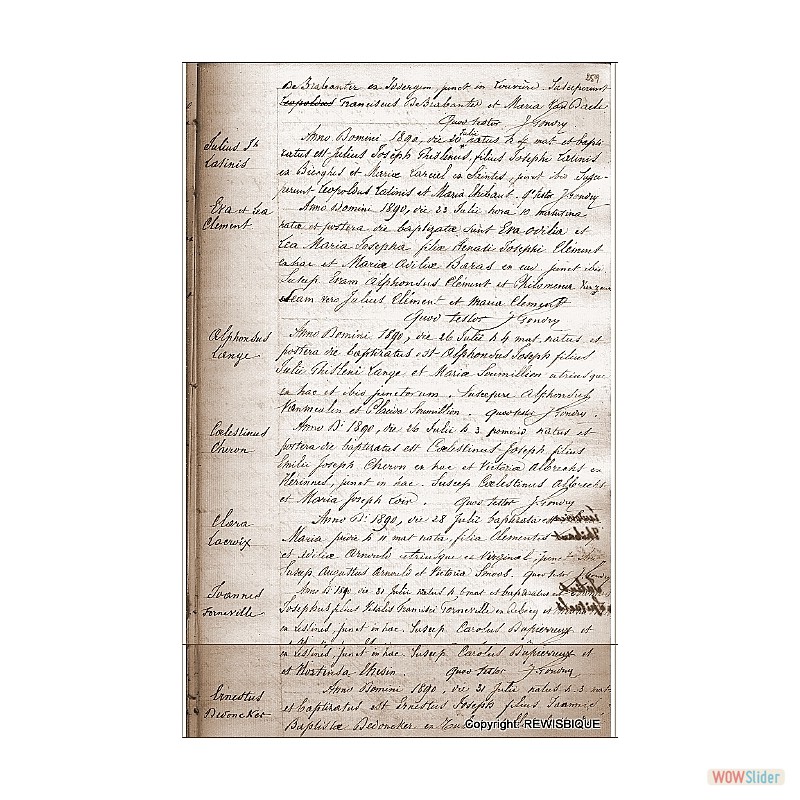 259
De Brabanter ex Isseryem, junct in Louvière. Susceperunt
Leopoldus Franciscus De Brabanter et Maria Van Daele
Quod testor J Gondry
Julius Jh
Latinis
Anno Domini 1890, die 20 Julii natus h 4 mat et bapti
zatus est Julius Joseph Ghislenus, filius Josephi Latinis
ex Bierghes et Mariæ ex Saintes, junct ibi. Susce-
perunt Leopoldus Latinis et Maria Thibaut qd testor J Gondry
Eva et Lea
Clement
Anno Domini 1890, die 23 Julii hora 10 matutina
natæ et postera die baptizatæ sunt Eva Ovilia et
Lea Maria Josepha filiæ Renati Josephi Clément
ex hac et Mariæ Ovilia Baras ex ead junct ibi
Suscep. Evam Alphonsus Clément et Philomena
Leam vero Julius Clément et Maria Clement
Quod testor J Gondry
Alphonsus
Lange
Anno Domini 1890, die 26 Julii h 4 mat. natus et
postera die baptizatus est Alphonsus Joseph filius
Julii Ghisleni Lange et Mariæ Soumillion utriusque
ex hac et ibi junctorum. Suscepere Alphonsus
Vanmeulen et Placida Soumillion. quod testor J Gondry.
Cœlestinus
Cheron
Anno Di 1890, die 26 Julii h 3 pomerid natus et
postera die baptizatus est Cœlestinus Joseph filius
Emilii Joseph Cheron ex hac et Victoriæ Albrechs ex
Herinnes, junct in hac. Suscep Cœlestinus Albrechs
et Maria Joseph. Quod testor J Gondry
Clara
Lacroix
Anno Di 1890, die 28 Julii baptizata est
Maria pridie h 11 mat nata, filia Clementis
et Odiliæ Arnould utriusque ex Virginal junct ibi
Suscep Augustus Arnould et Victoria Smoos. Quod testor J Gondry
Joannes
Forneville
Anno Di 1890 die 31 julii natus h 6 mat et baptizatus est Joannes
Josephus filius Vitalis Francisci Forneville ex et
ex Lestines, junct in hac. Suscep. Carolus Dupierreux et
ex Lestines, junct in hac. Suscep. Carolus Dupierreux et
et Hortensa Ghisin. Quod testor J Gondry
Ernestus
Dedoncker
Anno Domini 1890, die 31 julii natus h 3 mat
et baptizatus est Ernestus Joseph filius Joannis
Baptistæ Dedoncker ex
Copyright: REWISBIQUE
WOWSlider